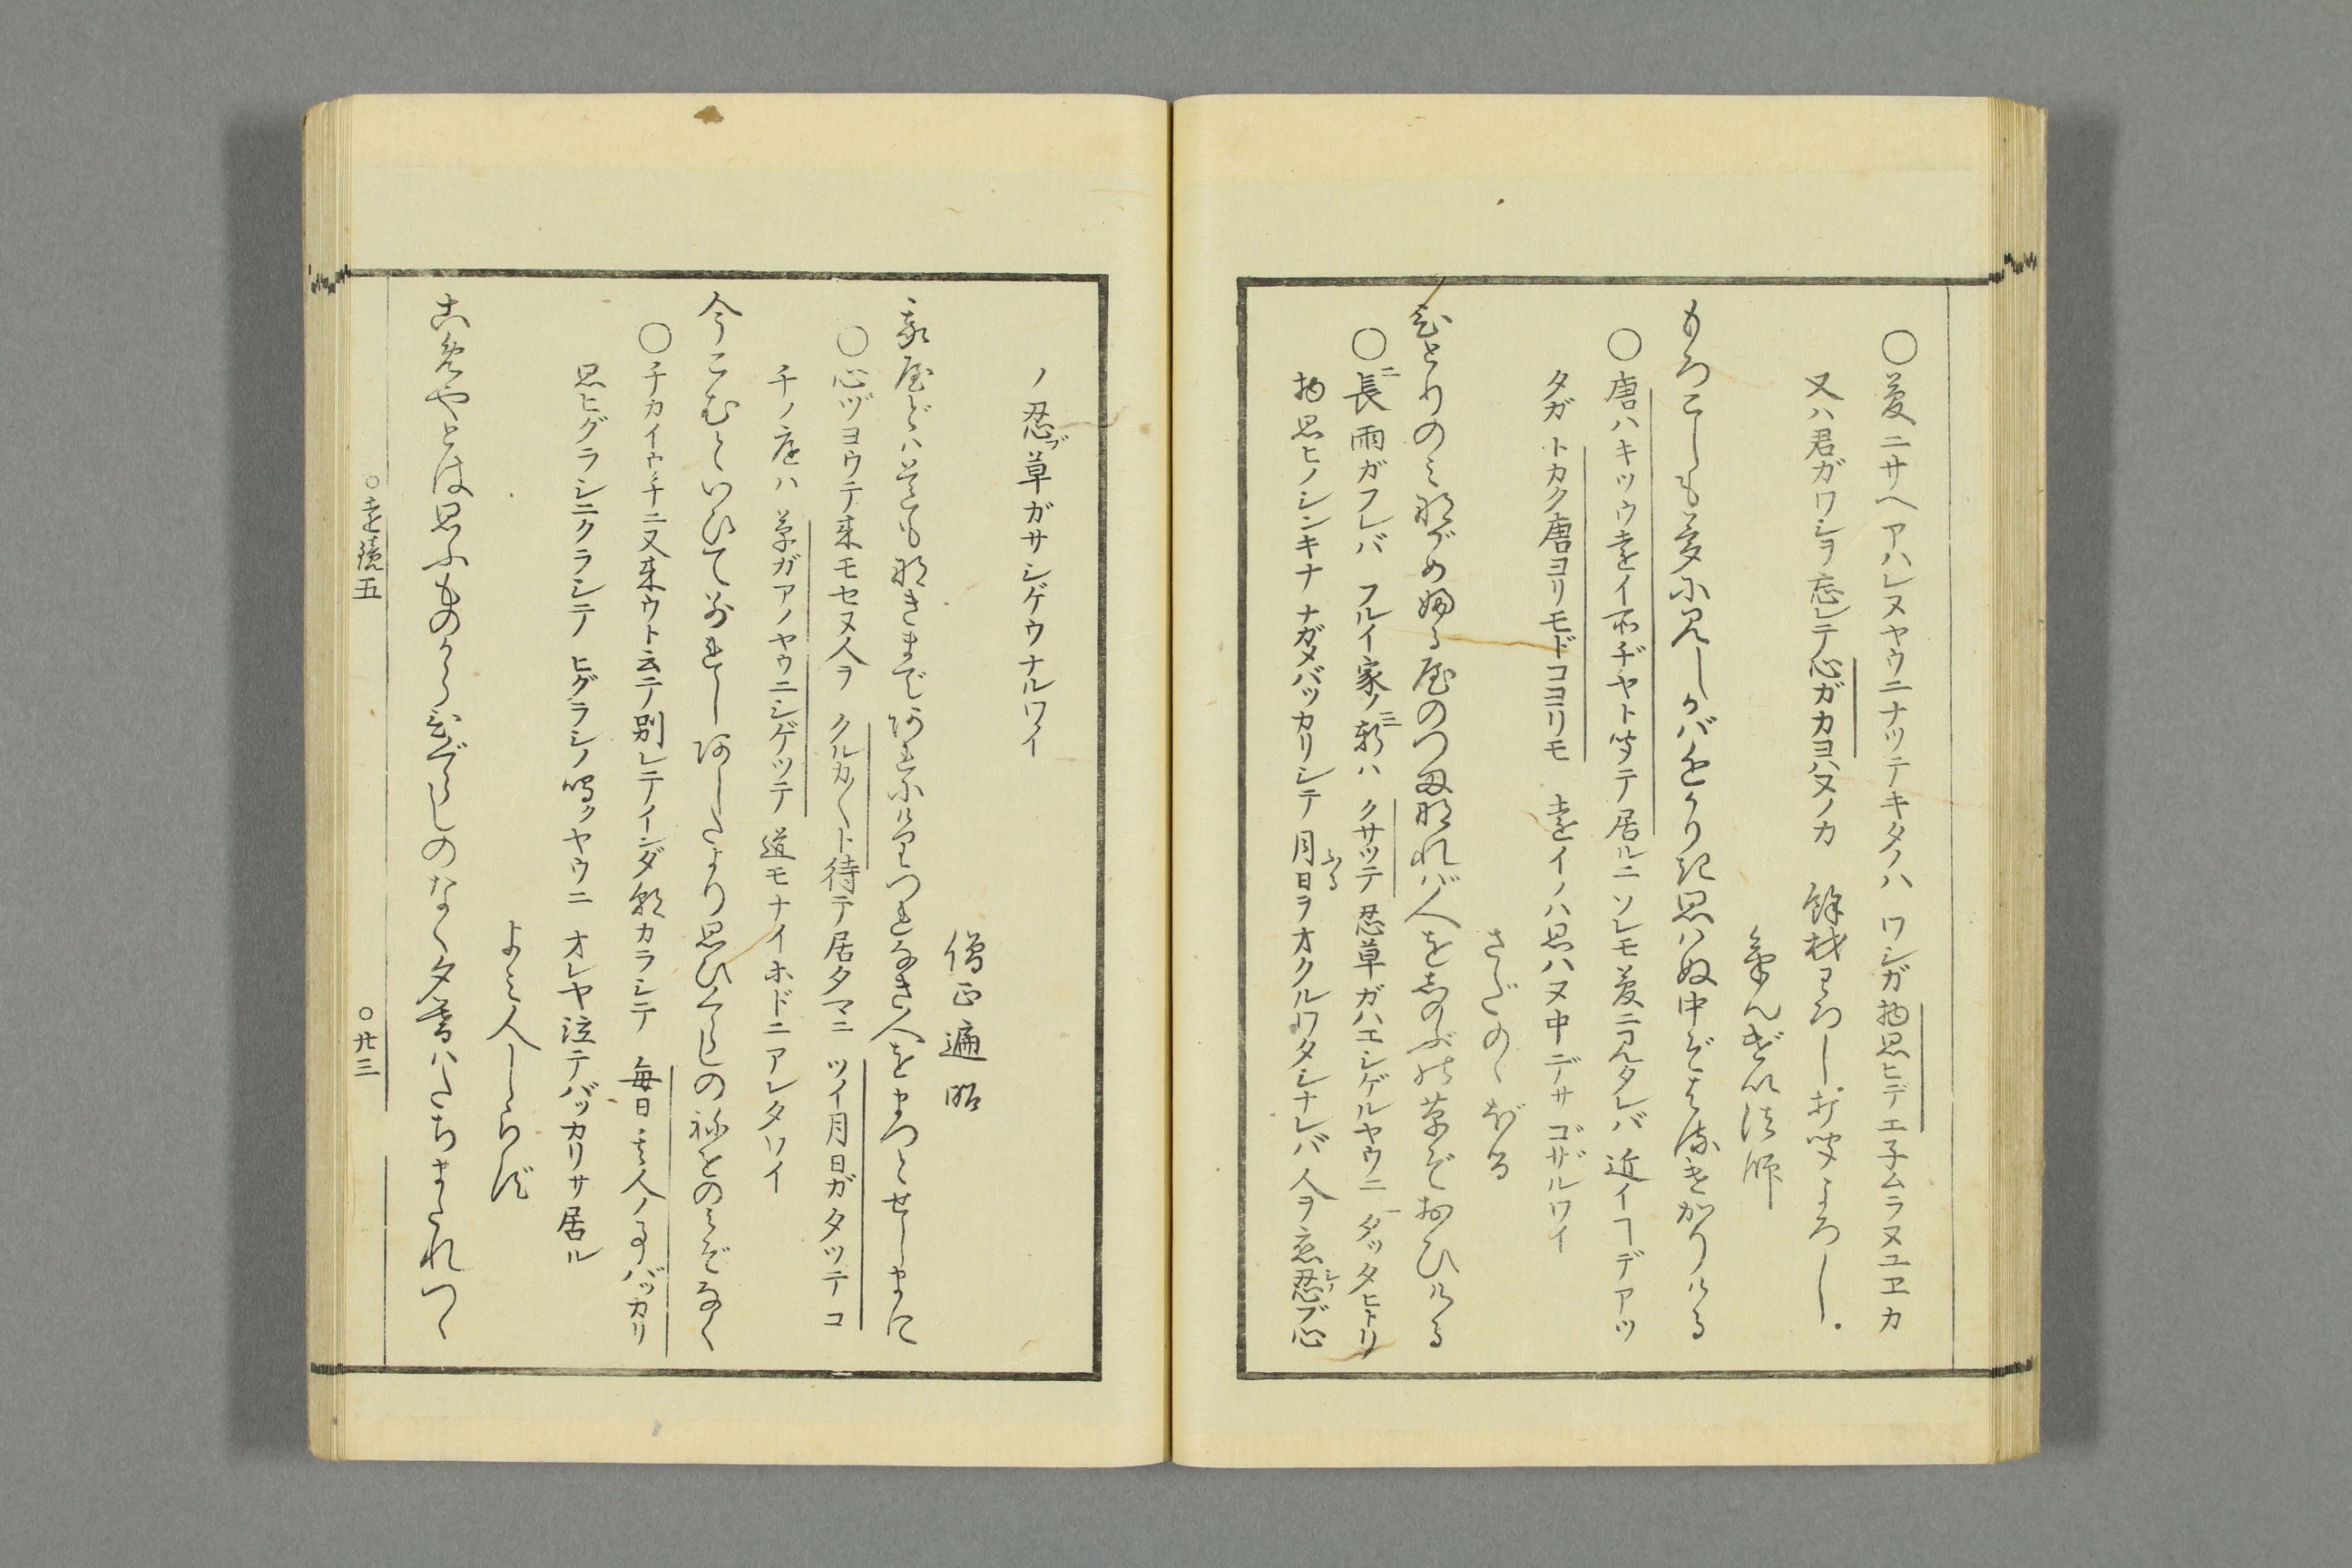 〇夢ニサヘアハレヌヤウニナツテキタノハ ワシガ物思ヒデエ子ムラヌユヱカ
又ハ君ガワシヲ忘レテ心ガカヨハヌノカ 餘材わろし打聞よろし
けんげい法師
もろこしも夢に見しかバちかかりき思ハぬ中ぞはるけかりける
〇唐ハキツウ遠イ所ヂヤト聞テ居ルニソレモ夢ニ見タレバ 近イヿデアツ
タガ トカク唐ヨリモドコヨリモ 遠イノハ思ハヌ中デサゴザルワイ
さだのゝぼる
ひとりのミながめふる屋のつまなれバ人を忍ぶの草ぞおひける
〇長雨ガフレバ フルイ家ノ軒ハ クサツテ 忍草ガハエシゲルヤウニ タツタヒトリ
物思ヒノシンキナナガメバツカリシテ 月日ヲオクルワタシナレバ 人ヲ恋忍ブ心
ノ忍ブ草ガサシゲウナルワイ
僧正遍昭
我屋どハ道もなきまであれにけりつれなき人をまつとせしまに
〇心ヅヨウテ来モセヌ人ヲ クルカ〳〵ト待テ居タマニ ツイ月日ガタツテコ
チノ庭ハ 草ガアノヤウニシゲツテ 道モナイホドニアレタワイ
今こむといひてわかれしあしたより思ひくらしの祢をのミぞなく
〇チカイウチニ又来ウト云テ別レテインダ朝カラシテ 毎日其人ノ事バツカリ
思ヒグラシニクラシテ ヒグラシノ鳴クヤウニ オレヤ泣テバツカリサ居ル
よミ人しらず
こめやとは思ふものからひぐらしのなく夕暮ハたちまたれつゝ
〇遠鏡五 〇廿三